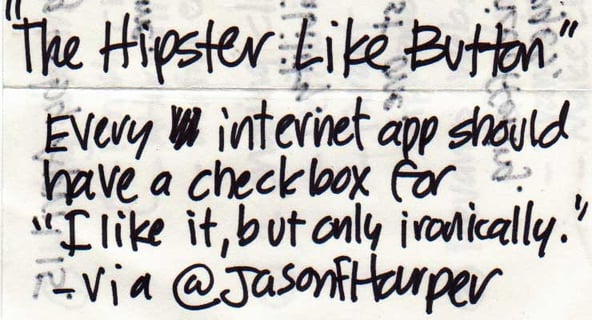 "The Hipster Like Button"
Every internet app should
have a checkbox for
"I like it, but only ironically."
- via @JasonFHarper